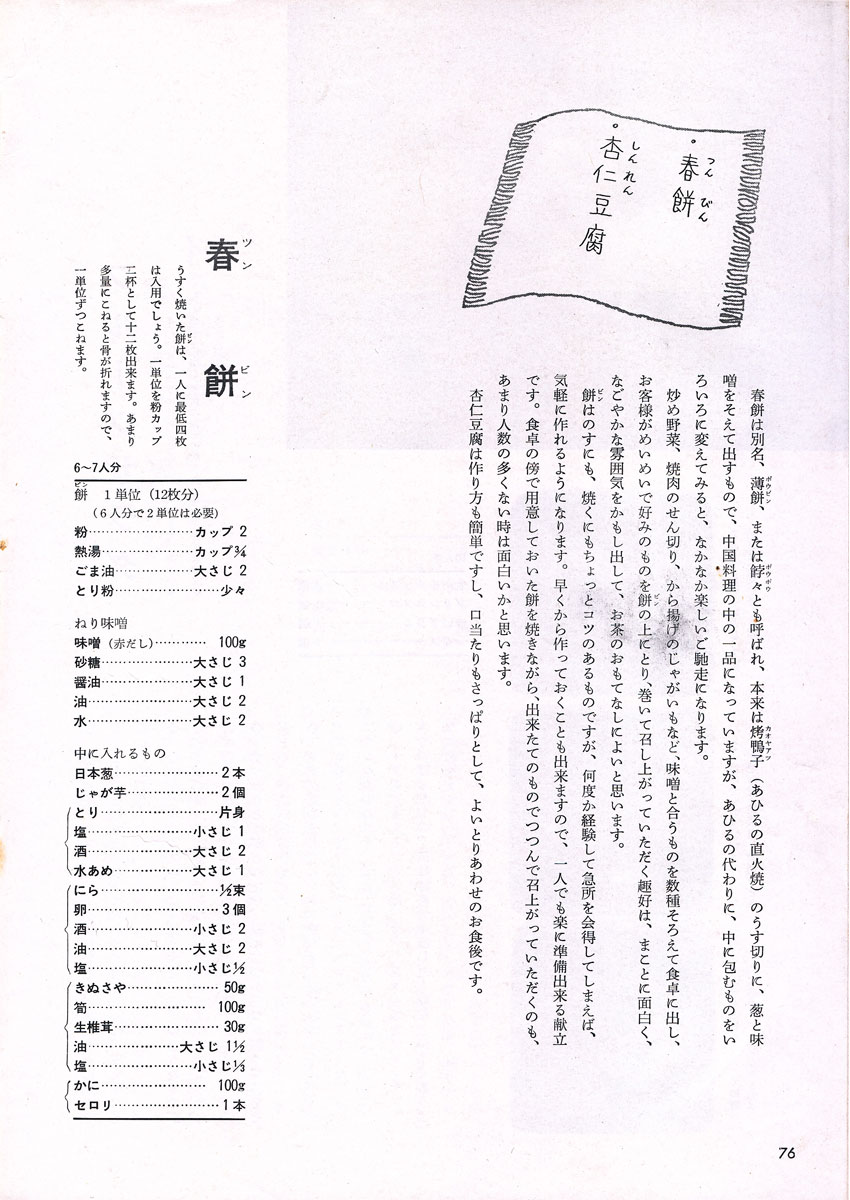 ・春餅
つん びん
・杏仁豆腐
しんれん
春餅は別名、薄餅、または餑々とも呼ばれ、本来は烤鴨子(あひるの直火焼)のうす切りに、葱と味
噌をそえて出すもので、中国料理の中の一品になっていますが、あひるの代わりに、中に包むものをい
ろいろに変えてみると、なかなか楽しいご馳走になります。
炒め野菜、焼肉のせん切り、から揚げのじゃがいもなど、味噌と合うものを数種そろえて食卓に出し、
お客様がめいめいで好みのものを餅の上にとり、巻いて召し上がっていただく趣好は、まことに面白く、
なごやかな雰囲気をかもし出して、お茶のおもてなしによいと思います。
餅はのすにも、焼くにもちょっとコツのあるものですが、何度か経験して急所を会得してしまえば、
気軽に作れるようになります。早くから作っておくことも出来ますので、一人でも楽に準備出来る献立
です。食卓の傍で用意しておいた餅を焼きながら、出来たてのものでつつんで召上がっていただくのも、
あまり人数の多くない時は面白いかと思います。
杏仁豆腐は作り方も簡単ですし、口当たりもさっぱりとして、よいとりあわせのお食後です。
春餅
ツン ビン
うすく焼いた餅は、一人に最低四枚
は入用でしょう。一単位を粉カップ
二杯として十二枚出来ます。あまり
多量にこねると骨が折れますので、
一単位ずつこねます。
6〜7人分
餅 1単位(12枚分)
(6人分で2単位は必要)
粉…………カップ 2
熱湯…………カップ¾
ごま油…………大さじ 2
とり粉…………少々
ねり味噌
味噌(赤だし)………… 100g
砂糖…………大さじ 3
醤油…………大さじ 1
油…………大さじ 2
水…………大さじ 2
中に入れるもの
日本葱…………2本
じゃが芋…………2個
とり…………片身
塩…………小さじ 1
酒…………大さじ 2
水あめ…………大さじ 1
にら…………½束
卵…………3個
酒…………小さじ 2
油…………大さじ 2
塩…………小さじ½
きぬさや………… 50g
筍………… 100g
生椎茸………… 30g
油…………大さじ 1½
塩…………小さじ⅓
かに………… 100g
セロリ…………1本
76